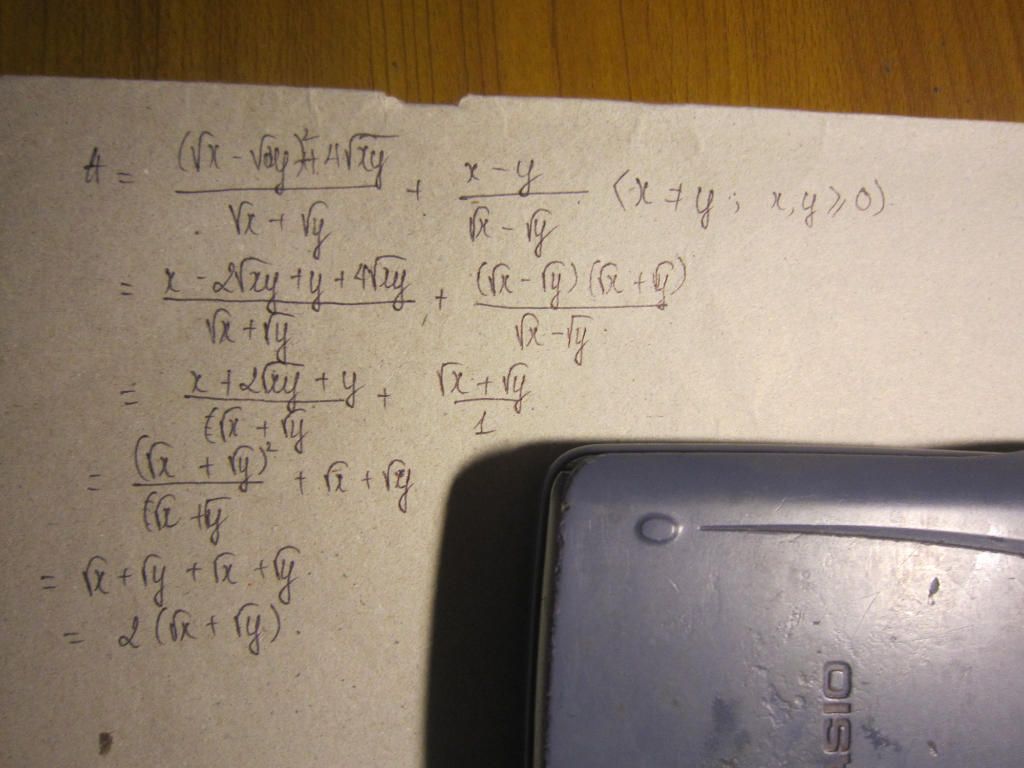 A = \frac{(\sqrt{x} - \sqrt{y})^2 + 4\sqrt{xy}}{\sqrt{x} + \sqrt{y}} + \frac{x - y}{\sqrt{x} - \sqrt{y}} (x ≠ y ; x, y ⩾ 0)
= \frac{x - 2\sqrt{xy} + y + 4\sqrt{xy}}{\sqrt{x} + \sqrt{y}} + \frac{(\sqrt{x} - \sqrt{y})(\sqrt{x} + \sqrt{y})}{\sqrt{x} - \sqrt{y}}
= \frac{x + 2\sqrt{xy} + y}{(\sqrt{x} + \sqrt{y}} + \frac{\sqrt{x} + \sqrt{y}}{1}
= \frac{(\sqrt{x} + \sqrt{y})^2}{(\sqrt{x} + \sqrt{y}} + \sqrt{x} + \sqrt{y}
= \sqrt{x} + \sqrt{y} + \sqrt{x} + \sqrt{y}
= 2(\sqrt{x} + \sqrt{y}).